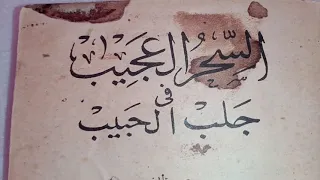 السِّحْرُ العَجِيبْ
فى
جَلْبْ الحَبيبْ